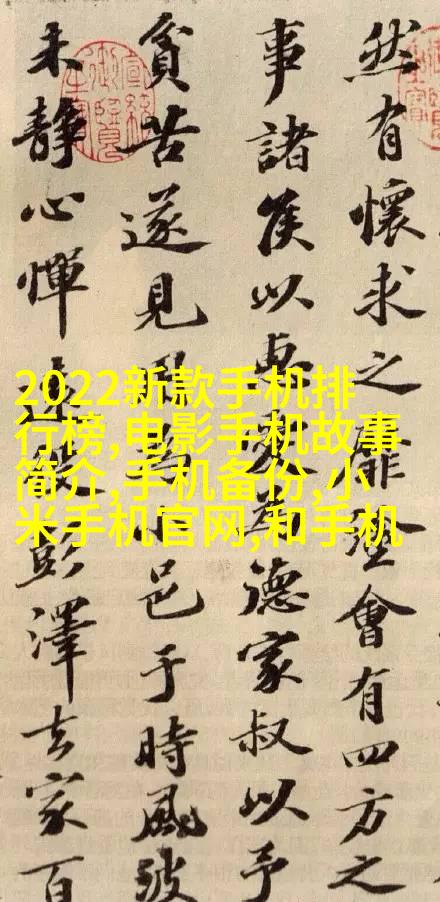 然有懷求之靡會有四方之
事諸侯以惠愛為德家叔以予
貧苦遂見用為小邑于時風波
未靜心憚遠役彭澤去家百
2022新款手机排
行榜,电影手机故事
简介,手机备份,小
米手机官网,和手机